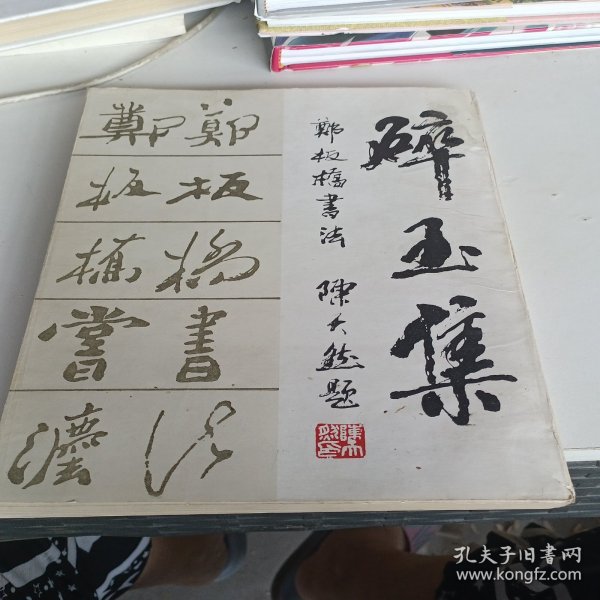 碎玉集
鄭板橋書法
陳大𤋮題
鄭鄭
板板
橋橋
書書
法灋
孔夫子旧书网
www.kongfz.com